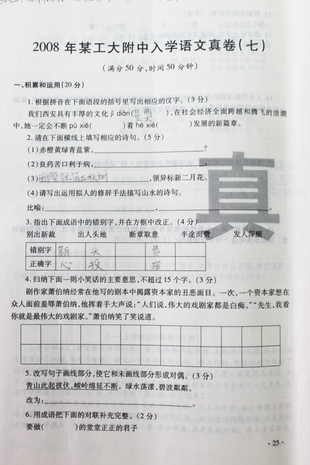 2008 年某工大附中入学语文真卷(七)
(满分50分,时间50分钟)
一、积累和运用(20分)
1. 根据拼音在下面语段的括号里写出相应的汉字。(3分)
我们西安具有丰厚的文化 jī diàn( ),在社会经济全面跨越和腾飞的浪潮
中,她一定会不断 pǔ xiě( )着 hé xié( )发展的新篇章。
2. 请在下面横线上填写相应的语句。(5分)
(1)赤橙黄绿青蓝紫,
(2)良药苦口利于病,
(3) ,领异标新二月花。
(4)请写出运用拟人的修辞手法描写山水的诗句。
比喻:
3. 指出下面成语中的错别字,并在方框中改正。(4分)
别出新裁 出人头地 断章取意 半途而费 发人深醒
错别字 新
正确字 心
4. 归纳下面一则小笑话的主要意思,不超过15个字。(3分)
剧作家萧伯纳经常在他写的剧本中揭露资本家的丑恶面目。一次,一个资本家想在
众人面前羞辱萧伯纳,他挥着手大声说:“人们说,伟大的戏剧家都是白痴。”“先生,我看
你就是最伟大的戏剧家。”萧伯纳笑了笑说道。
5. 改写句子画线部分,使它和未画线部分形成对偶。(3分)
青山此起彼伏,峻岭绵延不断。绿水荡漾,碧波粼粼。
改为:
6. 用成语把下面的对联补充完整。(2分)
要做( )的堂堂正正的君子
真
·25·